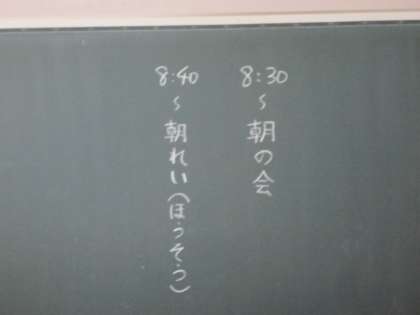 8:30〜朝の会
8:40〜朝れい(ほうそう)